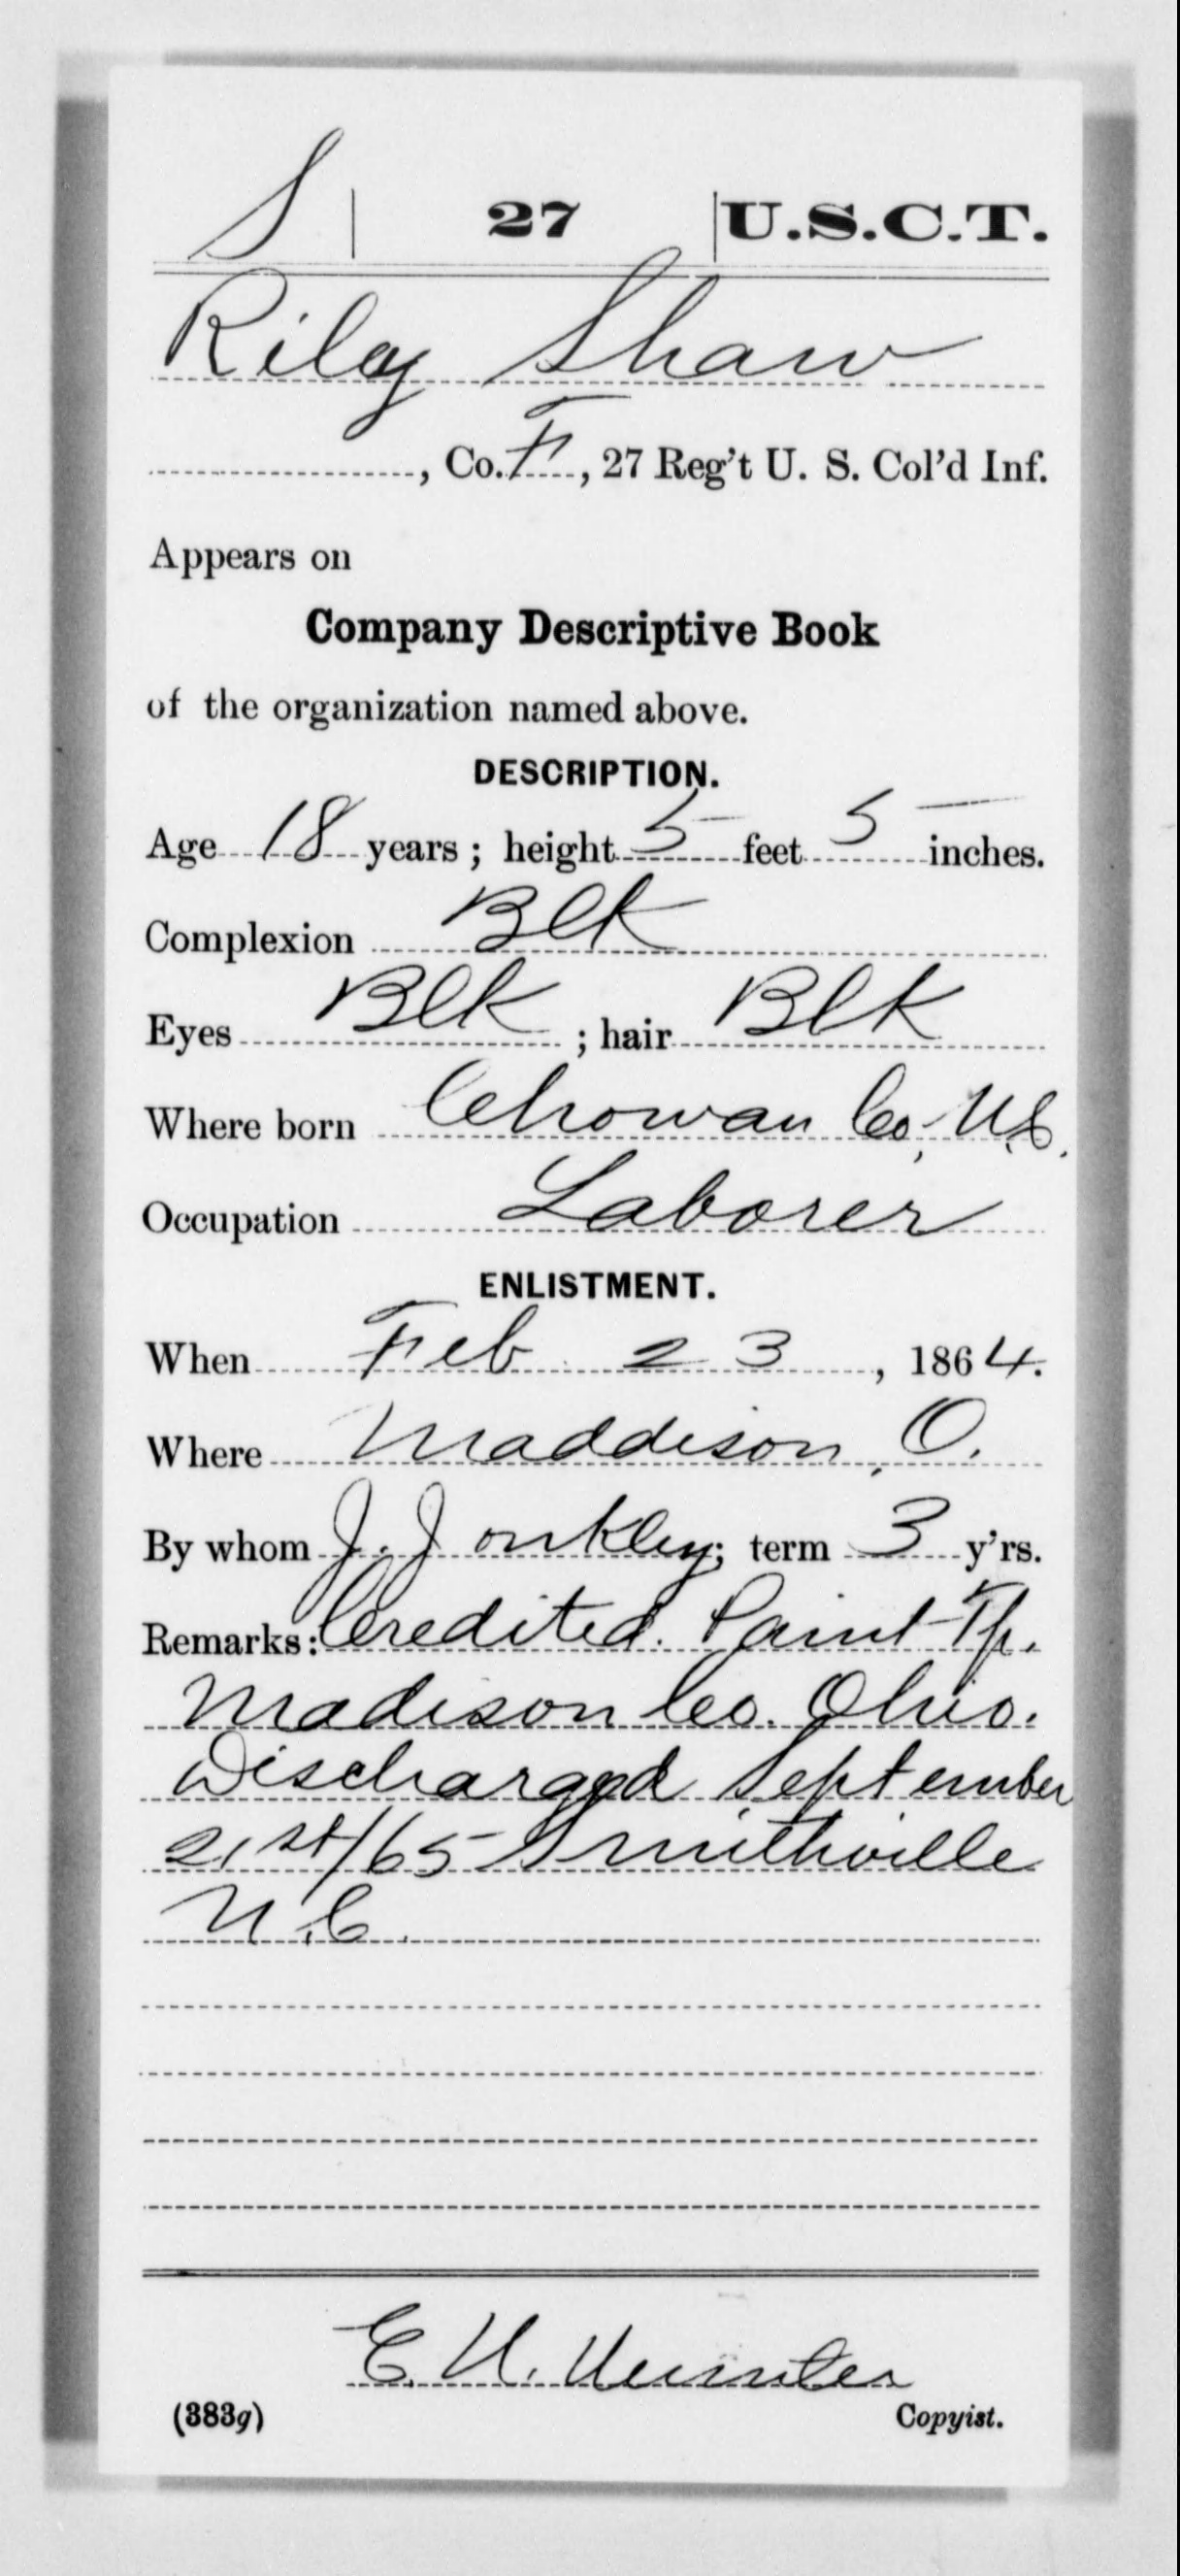 S | 27 | U.S.C.T.
Riley Shaw
, Co. F, 27 Reg't U. S. Col'd Inf.
Appears on
Company Descriptive Book
of the organization named above.
DESCRIPTION.
Age 18 years; height 5 feet 5 inches.
Complexion Blk
Eyes Blk; hair Blk
Where born Chowan Co., N.C.
Occupation Laborer
ENLISTMENT.
When Feb 23, 1864.
Where Maddison, O.
By whom J. J onkley; term 3 y'rs.
Remarks: Credited Paint Tp.
Madison Co. Ohio.
Discharged September
21st/65 Smithville
N.C.
E. U.
(383g) Copyist.